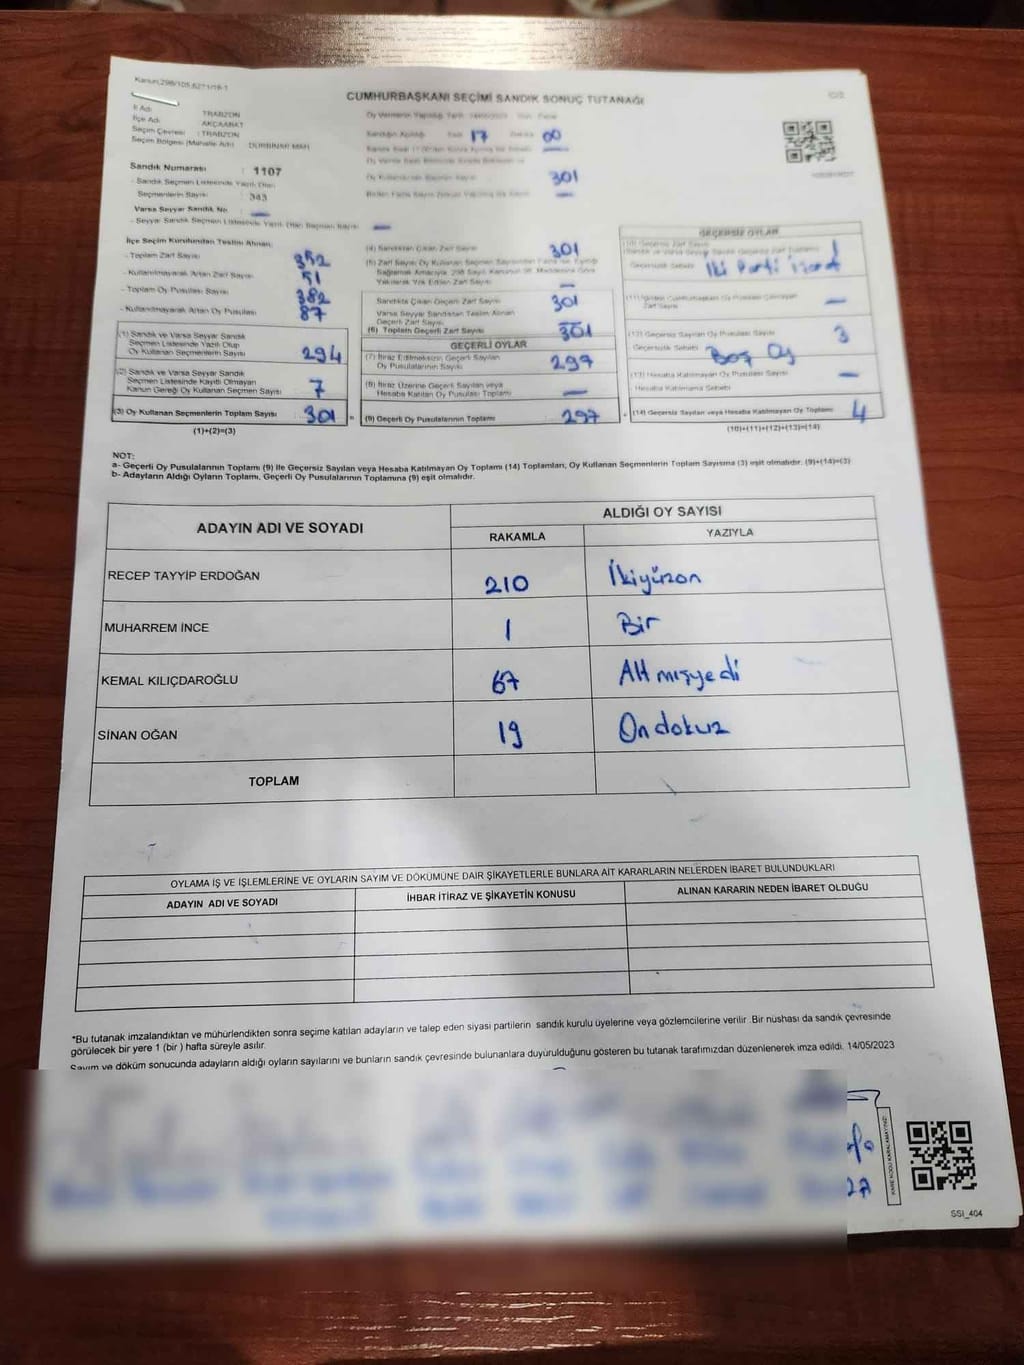 Kanun:298/105,6271/16-1
CUMHURBAŞKANI SEÇİMİ SANDIK SONUÇ TUTANAĞI
İl Adı : TRABZON
İlçe Adı AKÇAABAT
Seçim Çevresi : TRABZON
Seçim Bölgesi (Mahalle Adı)
Sandık Numarası : 1107
- Sandık Seçmen Listesinde Yazılı Olan
Seçmenlerin Sayısı : 343
Varsa Seyyar Sandık No
- Seyyar Sandık Seçmen Listesinde Yazılı Olan Seçmen Sayısı
17 00
301
İlçe Seçim Kurulundan Teslim Alınan;
- Toplam Zarf Sayısı 352
- Kullanılmayarak Artan Zarf Sayısı 51
- Toplam Oy Pusulası Sayısı 382
- Kullanılmayarak Artan Oy Pusulası 87
(1) Sandık ve Varsa Seyyar Sandık
Seçmen Listesinde Yazılı Olup
Oy Kullanan Seçmenlerin Sayısı 294
(2) Sandık ve Varsa Seyyar Sandık
Seçmen Listesinde Kayıtlı Olmayan
Kanun Gereği Oy Kullanan Seçmen Sayısı 7
(3) Oy Kullanan Seçmenlerin Toplam Sayısı 301
(1)+(2)=(3)
(4) Sandıktan Çıkan Zarf Sayısı 301
Sandıkta Çıkan Geçerli Zarf Sayısı 301
Varsa Seyyar Sandıktan Teslim Alınan
Geçerli Zarf Sayısı
(6) Toplam Geçerli Zarf Sayısı 301
GEÇERLİ OYLAR
(7) İtiraz Edilmeksizin Geçerli Sayılan
Oy Pusulalarının Sayısı 297
(8) İtiraz Üzerine Geçerli Sayılan veya
Hesaba Katılan Oy Pusulası Toplamı
(9) Geçerli Oy Pusulalarının Toplamı 297
GEÇERSİZ OYLAR
(10) Geçersiz Zarf Sayısı 1
Geçersizlik Sebebi İki Parti İşaret
Zarf Sayısı
(12) Geçersiz Sayılan Oy Pusulası Sayısı 3
Geçersizlik Sebebi Boş Oy
(13) Hesaba Katılmayan Oy Pusulası Sayısı
Hesaba Katılmama Sebebi
(14) Geçersiz Sayılan veya Hesaba Katılmayan Oy Toplamı 4
(10)+(11)+(12)+(13)=(14)
NOT:
a- Geçerli Oy Pusulalarının Toplamı (9) ile Geçersiz Sayılan veya Hesaba Katılmayan Oy Toplamı (14) Toplamları, Oy Kullanan Seçmenlerin Toplam Sayısına (3) eşit olmalıdır. (9)+(14)=(3)
b- Adayların Aldığı Oyların Toplamı, Geçerli Oy Pusulalarının Toplamına (9) eşit olmalıdır.
ADAYIN ADI VE SOYADI
ALDIĞI OY SAYISI
RAKAMLA YAZIYLA
RECEP TAYYİP ERDOĞAN 210 İkiyüzon
MUHARREM İNCE 1 Bir
KEMAL KILIÇDAROĞLU 67 Altmışyedi
SİNAN OĞAN 19 Ondokuz
TOPLAM
OYLAMA İŞ VE İŞLEMLERİNE VE OYLARIN SAYIM VE DÖKÜMÜNE DAİR ŞİKAYETLERLE BUNLARA AİT KARARLARIN NELERDEN İBARET BULUNDUKLARI
ADAYIN ADI VE SOYADI İHBAR İTİRAZ VE ŞİKAYETİN KONUSU ALINAN KARARIN NEDEN İBARET OLDUĞU
*Bu tutanak imzalandıktan ve mühürlendikten sonra seçime katılan adayların ve talep eden siyasi partilerin sandık kurulu üyelerine veya gözlemcilerine verilir .Bir nüshası da sandık çevresinde
görülecek bir yere 1 (bir ) hafta süreyle asılır.
Sayım ve döküm sonucunda adayların aldığı oyların sayılarını ve bunların sandık çevresinde bulunanlara duyurulduğunu gösteren bu tutanak tarafımızdan düzenlenerek imza edildi. 14/05/2023
KAREKODU KARALAMAYINIZ!
SSİ_404